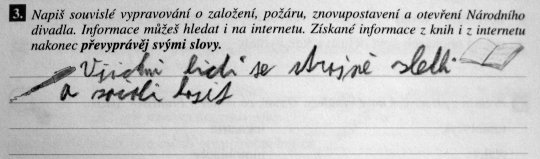 3. Napiš souvislé vypravování o založení, požáru, znovupostavení a otevření Národního
divadla. Informace můžeš hledat i na internetu. Získané informace z knih i z internetu
nakonec převyprávěj svými slovy.
Všichni lidi se strojně sletli
a začali hasit